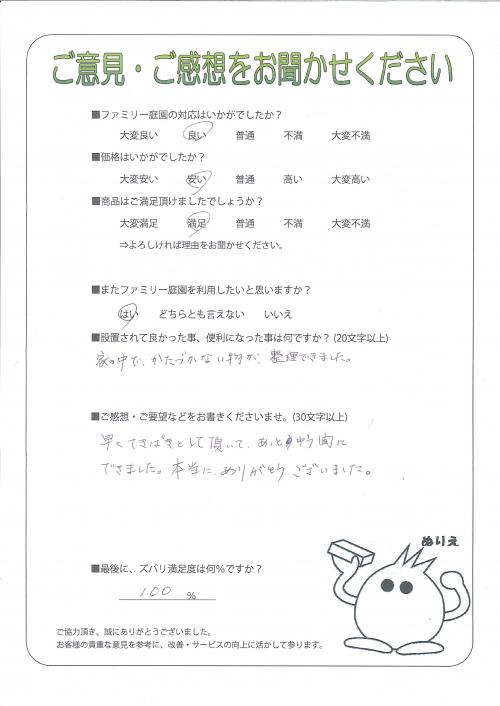 ご意見・ご感想をお聞かせください
■ファミリー庭園の対応はいかがでしたか？
大変良い 良い 普通 不満 大変不満
■価格はいかがでしたか？
大変安い 安い 普通 高い 大変高い
■商品はご満足頂けましたでしょうか？
大変満足 満足 普通 不満 大変不満
⇒よろしければ理由をお聞かせください。
■またファミリー庭園を利用したいと思いますか？
はい どちらとも言えない いいえ
■設置されて良かった事、便利になった事は何ですか？(20文字以上)
家の中で、かたづかない物が、整理できました。
■ご感想・ご要望などをお書きくださいませ。(30文字以上)
早くてきぱきとして頂いて、あっとゆう間に
できました。本当に、ありがとうございました。
ぬりえ
■最後に、ズバリ満足度は何％ですか？
100 %
ご協力頂き、誠にありがとうございました。
お客様の貴重な意見を参考に、改善・サービスの向上に活かして参ります。